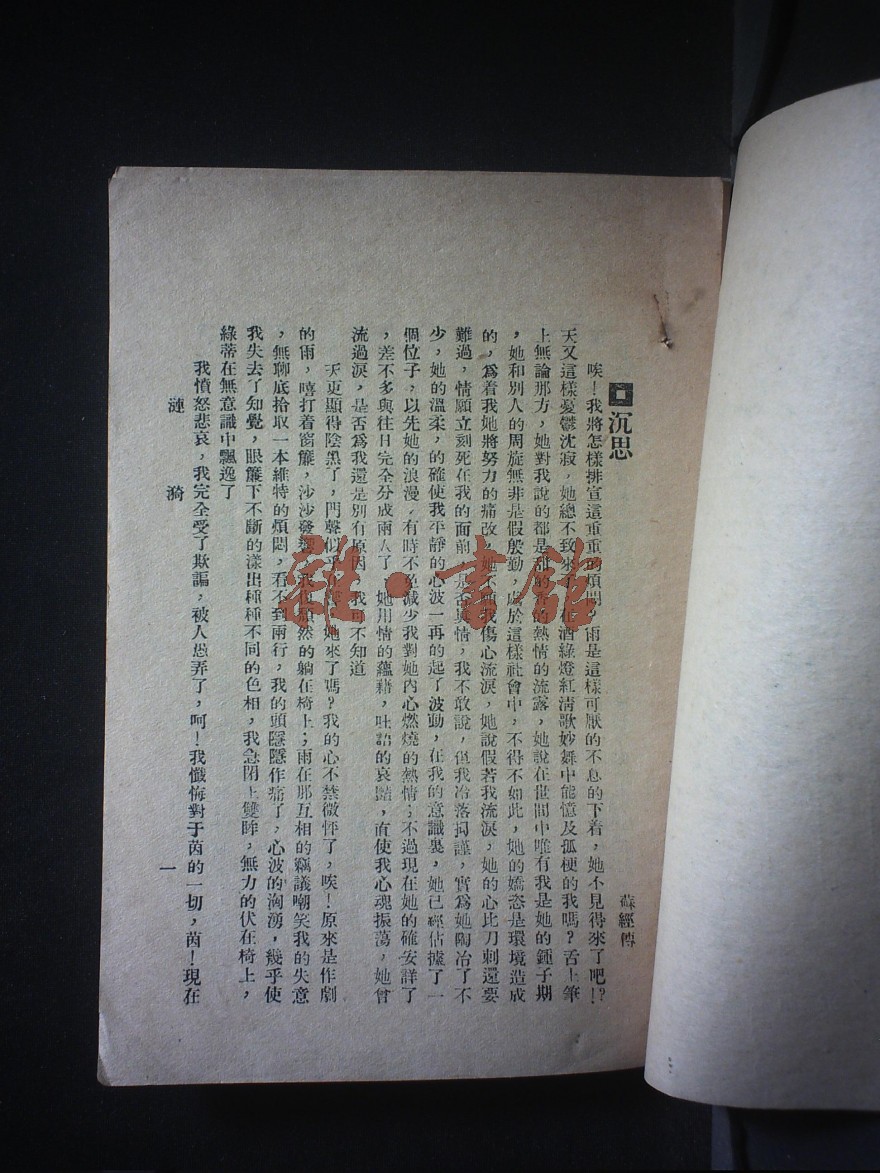 沉思
蘇經傳
唉！我將怎樣排宣這重重的煩悶？雨是這樣可厭的不息的下着，她不見得來了吧！？
天又這樣憂鬱沈寂，她總不致來了，在酒綠燈紅清歌妙舞中能憶及孤梗的我嗎？舌上筆
上無論那方，她對我說的都是甜的熱情的流露，她說在世間中唯有我是她的鍾子期
，她和別人的周旋無非是假殷勤，處於這樣社會中，不得不如此，她的嬌恣是環境造成
的，爲着我她將努力的痛改，她不願我傷心流淚，她說假若我流淚，她的心比刀刺還要
難過，情願立刻死在我的面前，是否眞情，我不敢說，但我冷落拘謹，實爲她陶冶了不
少，她的溫柔，的確使我平靜的心波一再的起了波動，在我的意識裏，她已經佔據了一
個位子，以先她的浪漫，有時不免減少我對她內心燃燒的熱情；不過現在她的確安詳了
，差不多與往日完全分成兩人了，她用情的蘊藉，吐語的哀豔，直使我心魂振蕩，她曾
流過淚，是否爲我還是別有原因，我可不知道
天更顯得陰黑了，門聲似乎，她來了嗎？我的心不禁微悸了，唉！原來是作劇
的雨，嘻打着窗簾，沙沙發響，我復頹然的躺在椅上；雨在那互相的竊議嘲笑我的失意
，無聊底拾取一本維特的煩悶，看不到兩行，我的頭隱隱作痛了，心波的洶湧，幾乎使
我失去了知覺，眼簾下不斷的漾出種種不同的色相，我急閉上雙眸，無力的伏在椅上，
綠蒂在無意識中飄逸了
我憤怒悲哀，我完全受了欺諞，被人愚弄了，呵！我懺悔對于茵的一切，茵！現在
漣漪
一
雜·書館